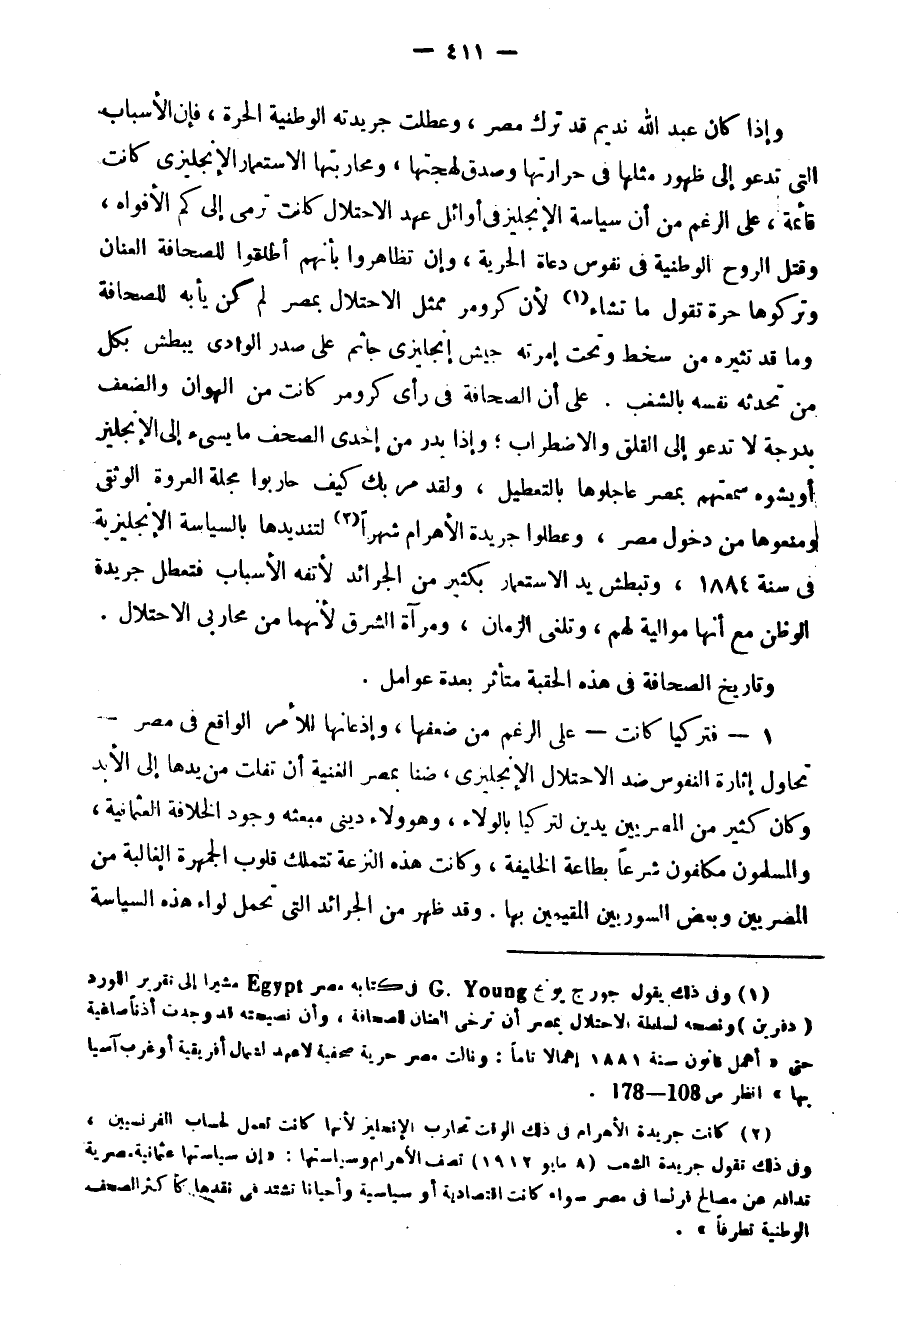 — ٤١١ —
وإذا كان عبد الله نديم قد ترك مصر ، وعطلت جريدته الوطنية الحرة ، فإن الأسباب
التى تدعو إلى ظهور مثلها فى حرارتها وصدق لهجتها ، ومحاربتها الاستعمار الإنجليزى كانت
قائمة ، على الرغم من أن سياسة الإنجليز فى أوائل عهد الاحتلال كانت ترمى إلى كم الأفواه ،
وقتل الروح الوطنية فى نفوس دعاة الحرية ، وإن تظاهروا بأنهم أطلقوا للصحافة العنان
وتركوها حرة تقول ما تشاء(١) لأن كرومر ممثل الاحتلال بمصر لم يكن يأبه للصحافة
وما قد تثيره من سخط وتحت إمرته جيش إنجليزى جاثم على صدر الوادى يبطش بكل
من تحدثه نفسه بالشغب . على أن الصحافة فى رأى كرومر كانت من الهوان والضعف
بدرجة لا تدعو إلى القلق والاضطراب ؛ وإذا بدر من إحدى الصحف ما يسىء إلى الإنجليز
أو يشوه سمعتهم بمصر عاجلوها بالتعطيل ، ولقد مر بك كيف حاربوا مجلة العروة الوثقى
ومنعوها من دخول مصر ، وعطلوا جريدة الأهرام شهراً(٢) لتنديدها بالسياسة الإنجليزية
فى سنة ١٨٨٤ ، وتبطش يد الاستعمار بكثير من الجرائد لأتفه الأسباب فتعطل جريدة
الوطن مع أنها موالية لهم ، وتلغى الزمان ، ومرآة الشرق لأنهما من محاربى الاحتلال .
وتاريخ الصحافة فى هذه الحقبة متأثر بعدة عوامل .
١ — فتركيا كانت — على الرغم من ضعفها ، وإذعانها للأمر الواقع فى مصر —
تحاول إثارة النفوس ضد الاحتلال الإنجليزى ، ضنا بمصر الغنية أن تفلت من يدها إلى الأبد
وكان كثير من المصريين يدين لتركيا بالولاء ، وهو ولاء دينى مبعثه وجود الخلافة العثمانية ،
والمسلمون مكلفون شرعاً بطاعة الخليفة ، وكانت هذه النزعة تتملك قلوب الجمهرة الغالبة من
المصريين وبعض السوريين المقيمين بها . وقد ظهر من الجرائد التى تحمل لواء هذه السياسة
(١) وفى ذلك يقول جورج يونج G. Young فى كتابه مصر Egypt مشيرا إلى تقرير اللورد
( دفرين ) ونصحه لسلطة الاحتلال بمصر أن ترخى العنان للصحافة ، وأن نصيحته قد وجدت أذناً صاغية
حتى « أهمل قانون سنة ١٨٨١ إهمالا تاماً : ونالت مصر حرية صحفية لا عهد لشمال أفريقية أو غرب آسيا
بها » انظر ص 108—178 .
(٢) كانت جريدة الأهرام فى ذلك الوقت تحارب الإنجليز لأنها كانت تعمل لحساب الفرنسيين ،
وفى ذلك تقول جريدة الشعب (٨ مايو ١٩١٢) تصف الأهرام وسياستها : « إن سياستها عثمانية مصرية
تدافع عن مصالح فرنسا فى مصر سواء كانت اقتصادية أو سياسية وأحيانا تشتد فى نقدها كأكثر الصحف
الوطنية تطرفاً » .